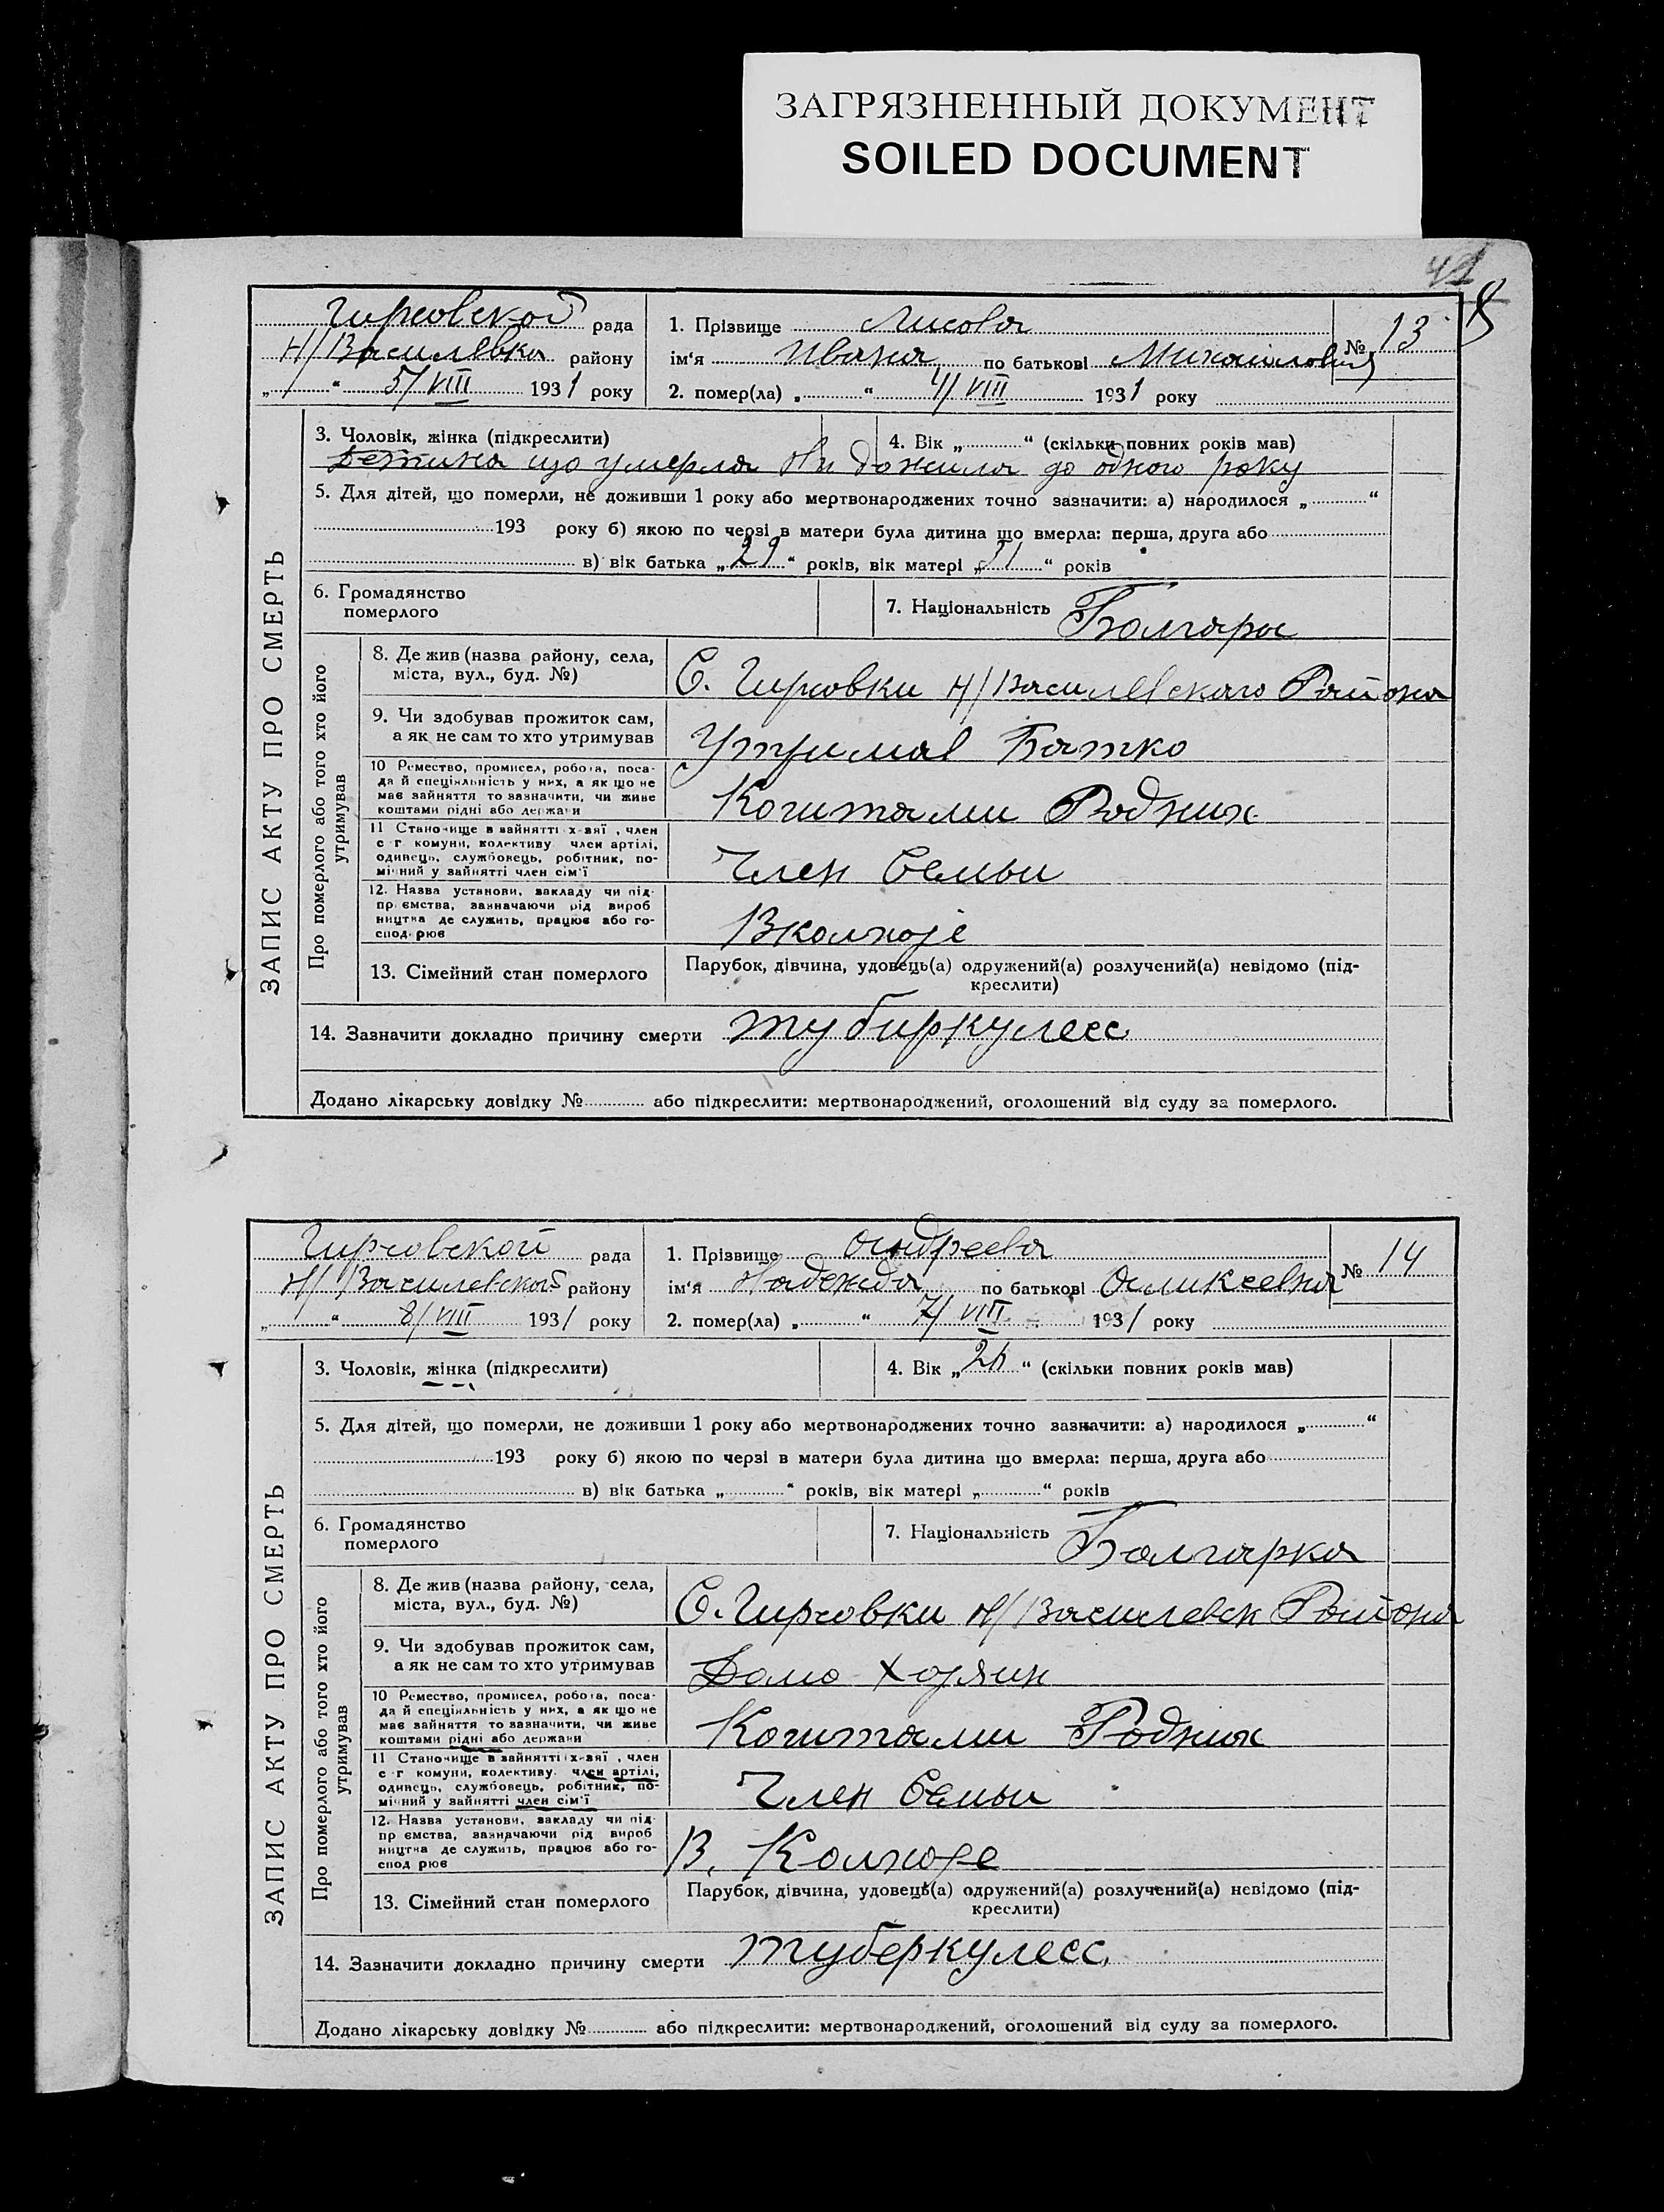 ЗАГРЯЗНЕННЫЙ ДОКУМЕНТ
SOILED DOCUMENT
Гирсовской рада
Н/Василевка району
„ “ 5/VIII 1931 року
1. Прізвище Лисова
ім‘я Ивана по батькові Михайлович № 13
2. помер(ла) „ “ 4/VIII 1931 року
ЗАПИС АКТУ ПРО СМЕРТЬ
3. Чоловік, жінка (підкреслити)
4. Вік „ “ (скільки повних років мав)
Детина що умерла Ни дожила до одного року
5. Для дітей, що померли, не доживши 1 року або мертвонароджених точно зазначити: а) народилося „ “
193 року б) якою по черзі в матери була дитина що вмерла: перша, друга або
в) вік батька „29“ років, вік матері „31“ років
6. Громадянство
померлого
7. Національність Болгары
Про померлого або того хто його
утримував
8. Де жив (назва району, села,
міста, вул., буд. №)
С. Гирсовки Н/Василевского Района
9. Чи здобував прожиток сам,
а як не сам то хто утримував
Утримав Батко
10 Ремество, промисел, робота, поса-
да й спеціяльність у них, а як що не
має зайняття то зазначити, чи живе
коштами рідні або держави
Коштами Родних
11 Становище в зайнятті х-вяї , член
с г комуни, колективу член артілі,
одинець, службовець, робітник, по-
мічний у зайнятті член сім‘ї
Член Семьи
12. Назва установи, закладу чи під-
пр ємства, зазначаючи рід вироб
ництва де служить, працює або го-
спод рює
Вколхозе
13. Сімейний стан померлого
Парубок, дівчина, удовець(а) одружений(а) розлучений(а) невідомо (під-
креслити)
14. Зазначити докладно причину смерти тубиркулесс
Додано лікарську довідку № або підкреслити: мертвонароджений, оголошений від суду за померлого.
Гирсовской рада
Н/Василевской району
„ “ 8/VIII 1931 року
1. Прізвище Андреева
ім‘я Надежда по батькові Аликсевна № 14
2. помер(ла) „ “ 7/VIII 1931 року
ЗАПИС АКТУ ПРО СМЕРТЬ
3. Чоловік, жінка (підкреслити)
4. Вік „ “ (скільки повних років мав)
5. Для дітей, що померли, не доживши 1 року або мертвонароджених точно зазначити: а) народилося „ “
193 року б) якою по черзі в матери була дитина що вмерла: перша, друга або
в) вік батька „ “ років, вік матері „ “ років
6. Громадянство
померлого
7. Національність Болгарка
Про померлого або того хто його
утримував
8. Де жив (назва району, села,
міста, вул., буд. №)
С. Гирсовки Н/Василевск Района
9. Чи здобував прожиток сам,
а як не сам то хто утримував
Домо Хозяин
10 Ремество, промисел, робота, поса-
да й спеціяльність у них, а як що не
має зайняття то зазначити, чи живе
коштами рідні або держави
Коштами Родних
11 Становище в зайнятті х-вяї , член
с г комуни, колективу. член артілі,
одинець, службовець, робітник, по-
мічний у зайнятті член сім‘ї
Член Семьи
12. Назва установи, закладу чи під-
пр ємства, зазначаючи рід вироб
ництва де служить, працює або го-
спод рює
В. Колхозе
13. Сімейний стан померлого
Парубок, дівчина, удовець(а) одружений(а) розлучений(а) невідомо (під-
креслити)
14. Зазначити докладно причину смерти туберкулесс
Додано лікарську довідку № або підкреслити: мертвонароджений, оголошений від суду за померлого.